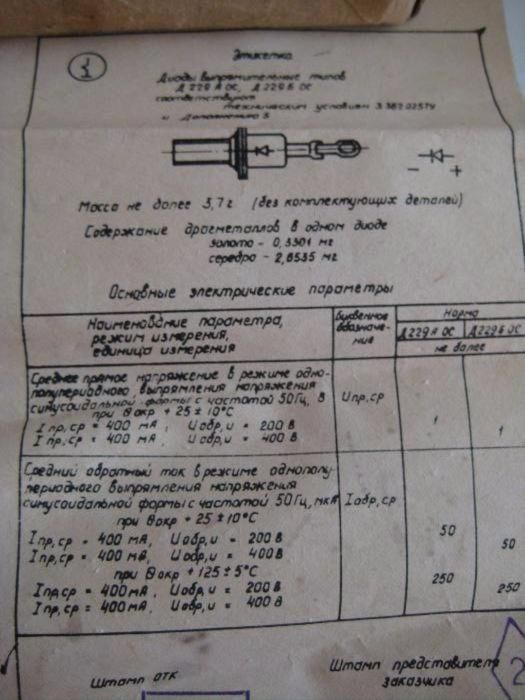 1
Этикетка
Диоды выпрямительные типов
Д 229 А ОС, Д 229 Б ОС
соответствуют
техническим условиям 3.362.025ТУ
и Дополнению 3
- +
Масса не более 3,7 г (без комплектующих деталей)
Содержание драгметаллов в одном диоде
золото - 0,3301 мг
серебро - 2,6535 мг
Основные электрические параметры
Наименование параметра,
режим измерения,
единица измерения
Буквенное
обозначе-
ние
Норма
Д 229 А ОС Д 229 Б ОС
не более
Среднее прямое напряжение в режиме одно-
полупериодного выпрямления напряжения
синусоидальной формы с частотой 50 Гц, В
Uпр,ср
при θокр + 25 ± 10°С
Iпр,ср = 400 мА, Uобр,и = 200 В 1
Iпр,ср = 400 мА, Uобр,и = 400 В 1
Средний обратный ток в режиме однополу-
периодного выпрямления напряжения
синусоидальной формы с частотой 50 Гц, мкА Iобр,ср
при θокр + 25 ± 10°С
Iпр,ср = 400 мА, Uобр,и = 200 В 50
Iпр,ср = 400 мА, Uобр,и = 400 В 50
при θокр + 125 ± 5°С
Iпр,ср = 400 мА, Uобр,и = 200 В 250
Iпр,ср = 400 мА, Uобр,и = 400 В 250
Штамп ОТК
Штамп представителя
заказчика
2